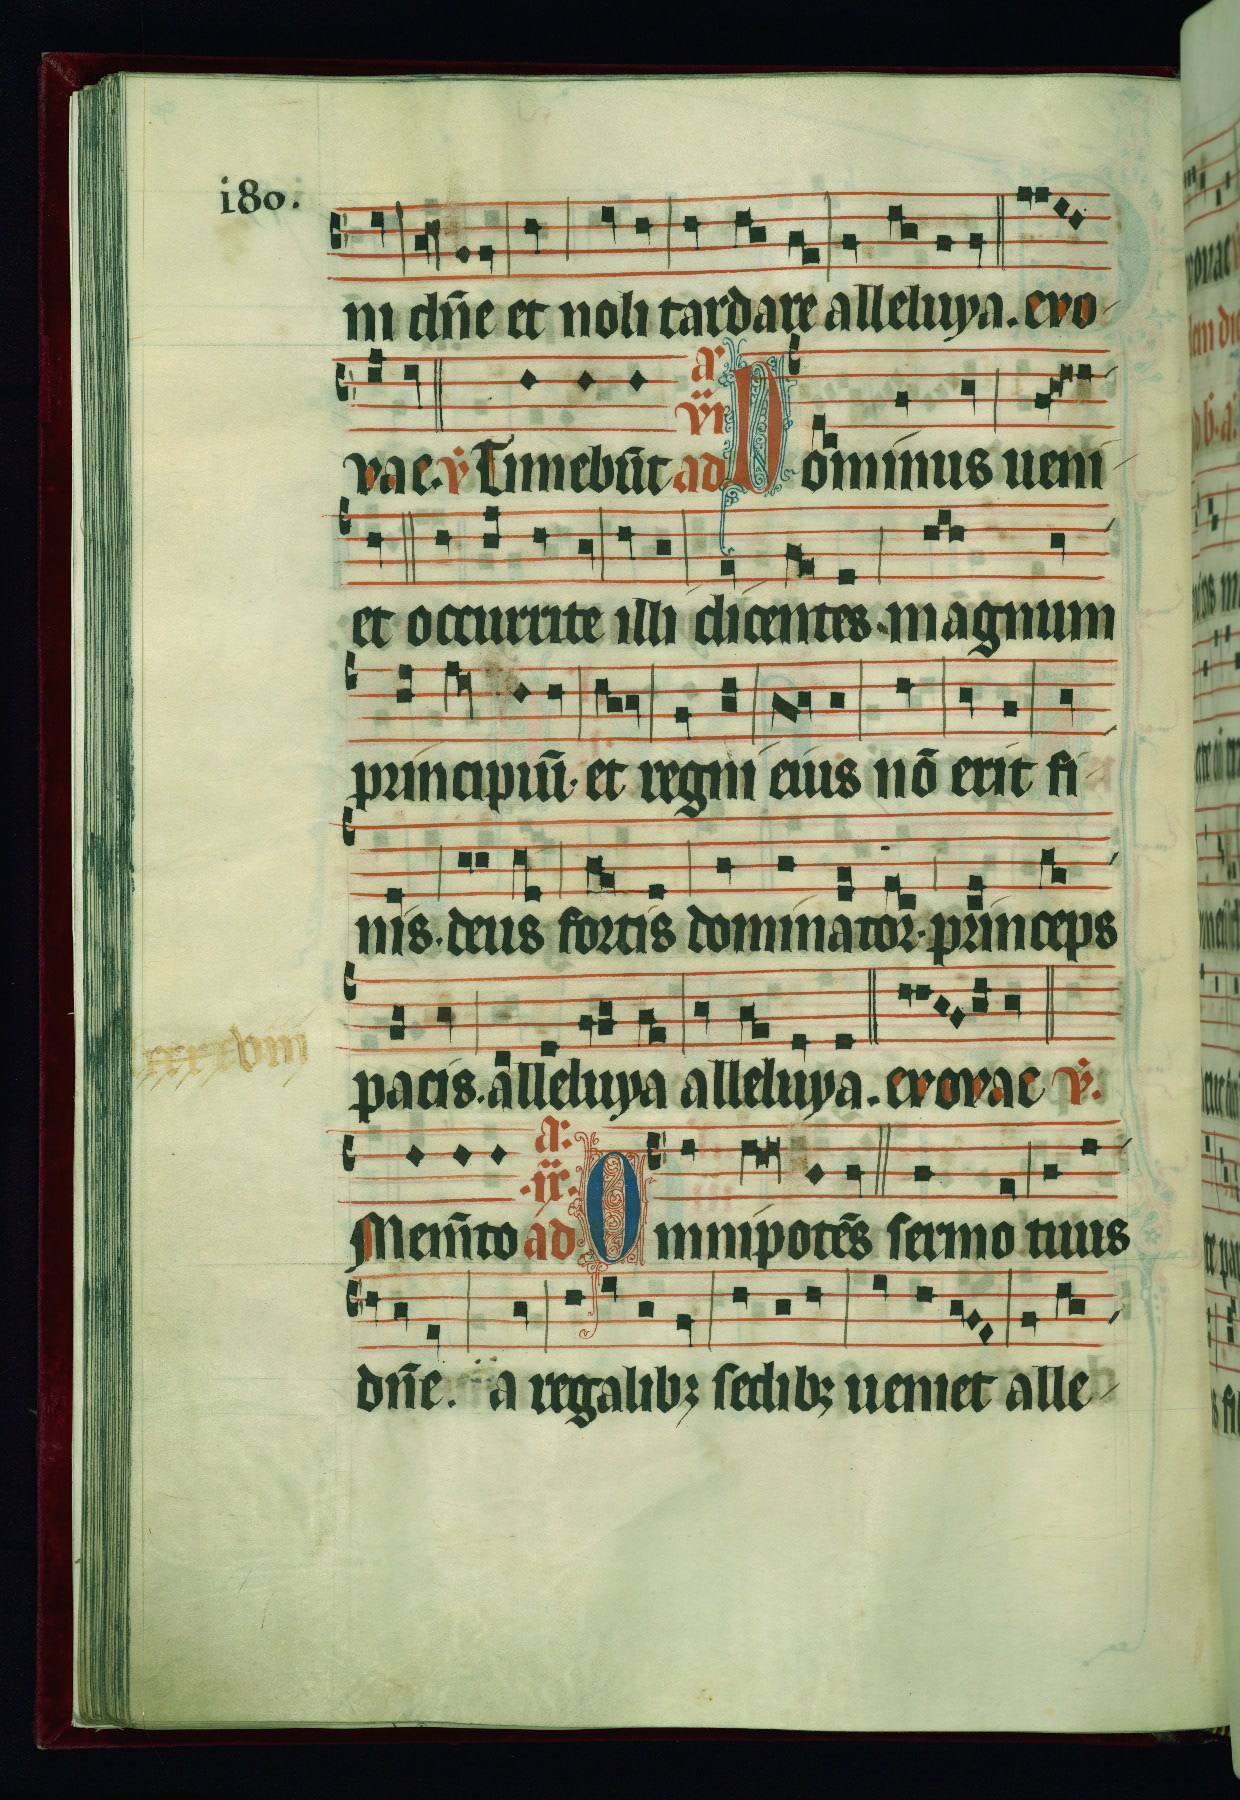 i80.
ni dñe et noli tardare alleluya. evo
vae. ℣ Timebūt ad Dominus ueni
a:
vi
et occurrite illi dicentes. magnum
principiū. et regni eius nō erit fi
nis. deus fortis dominator. princeps
pacis. alleluya alleluya. evovae ℣.
a:
.ix.
Mem̄to ad Omnipotēs sermo tuus
dñe. a regalibꝫ sedibꝫ ueniet alle